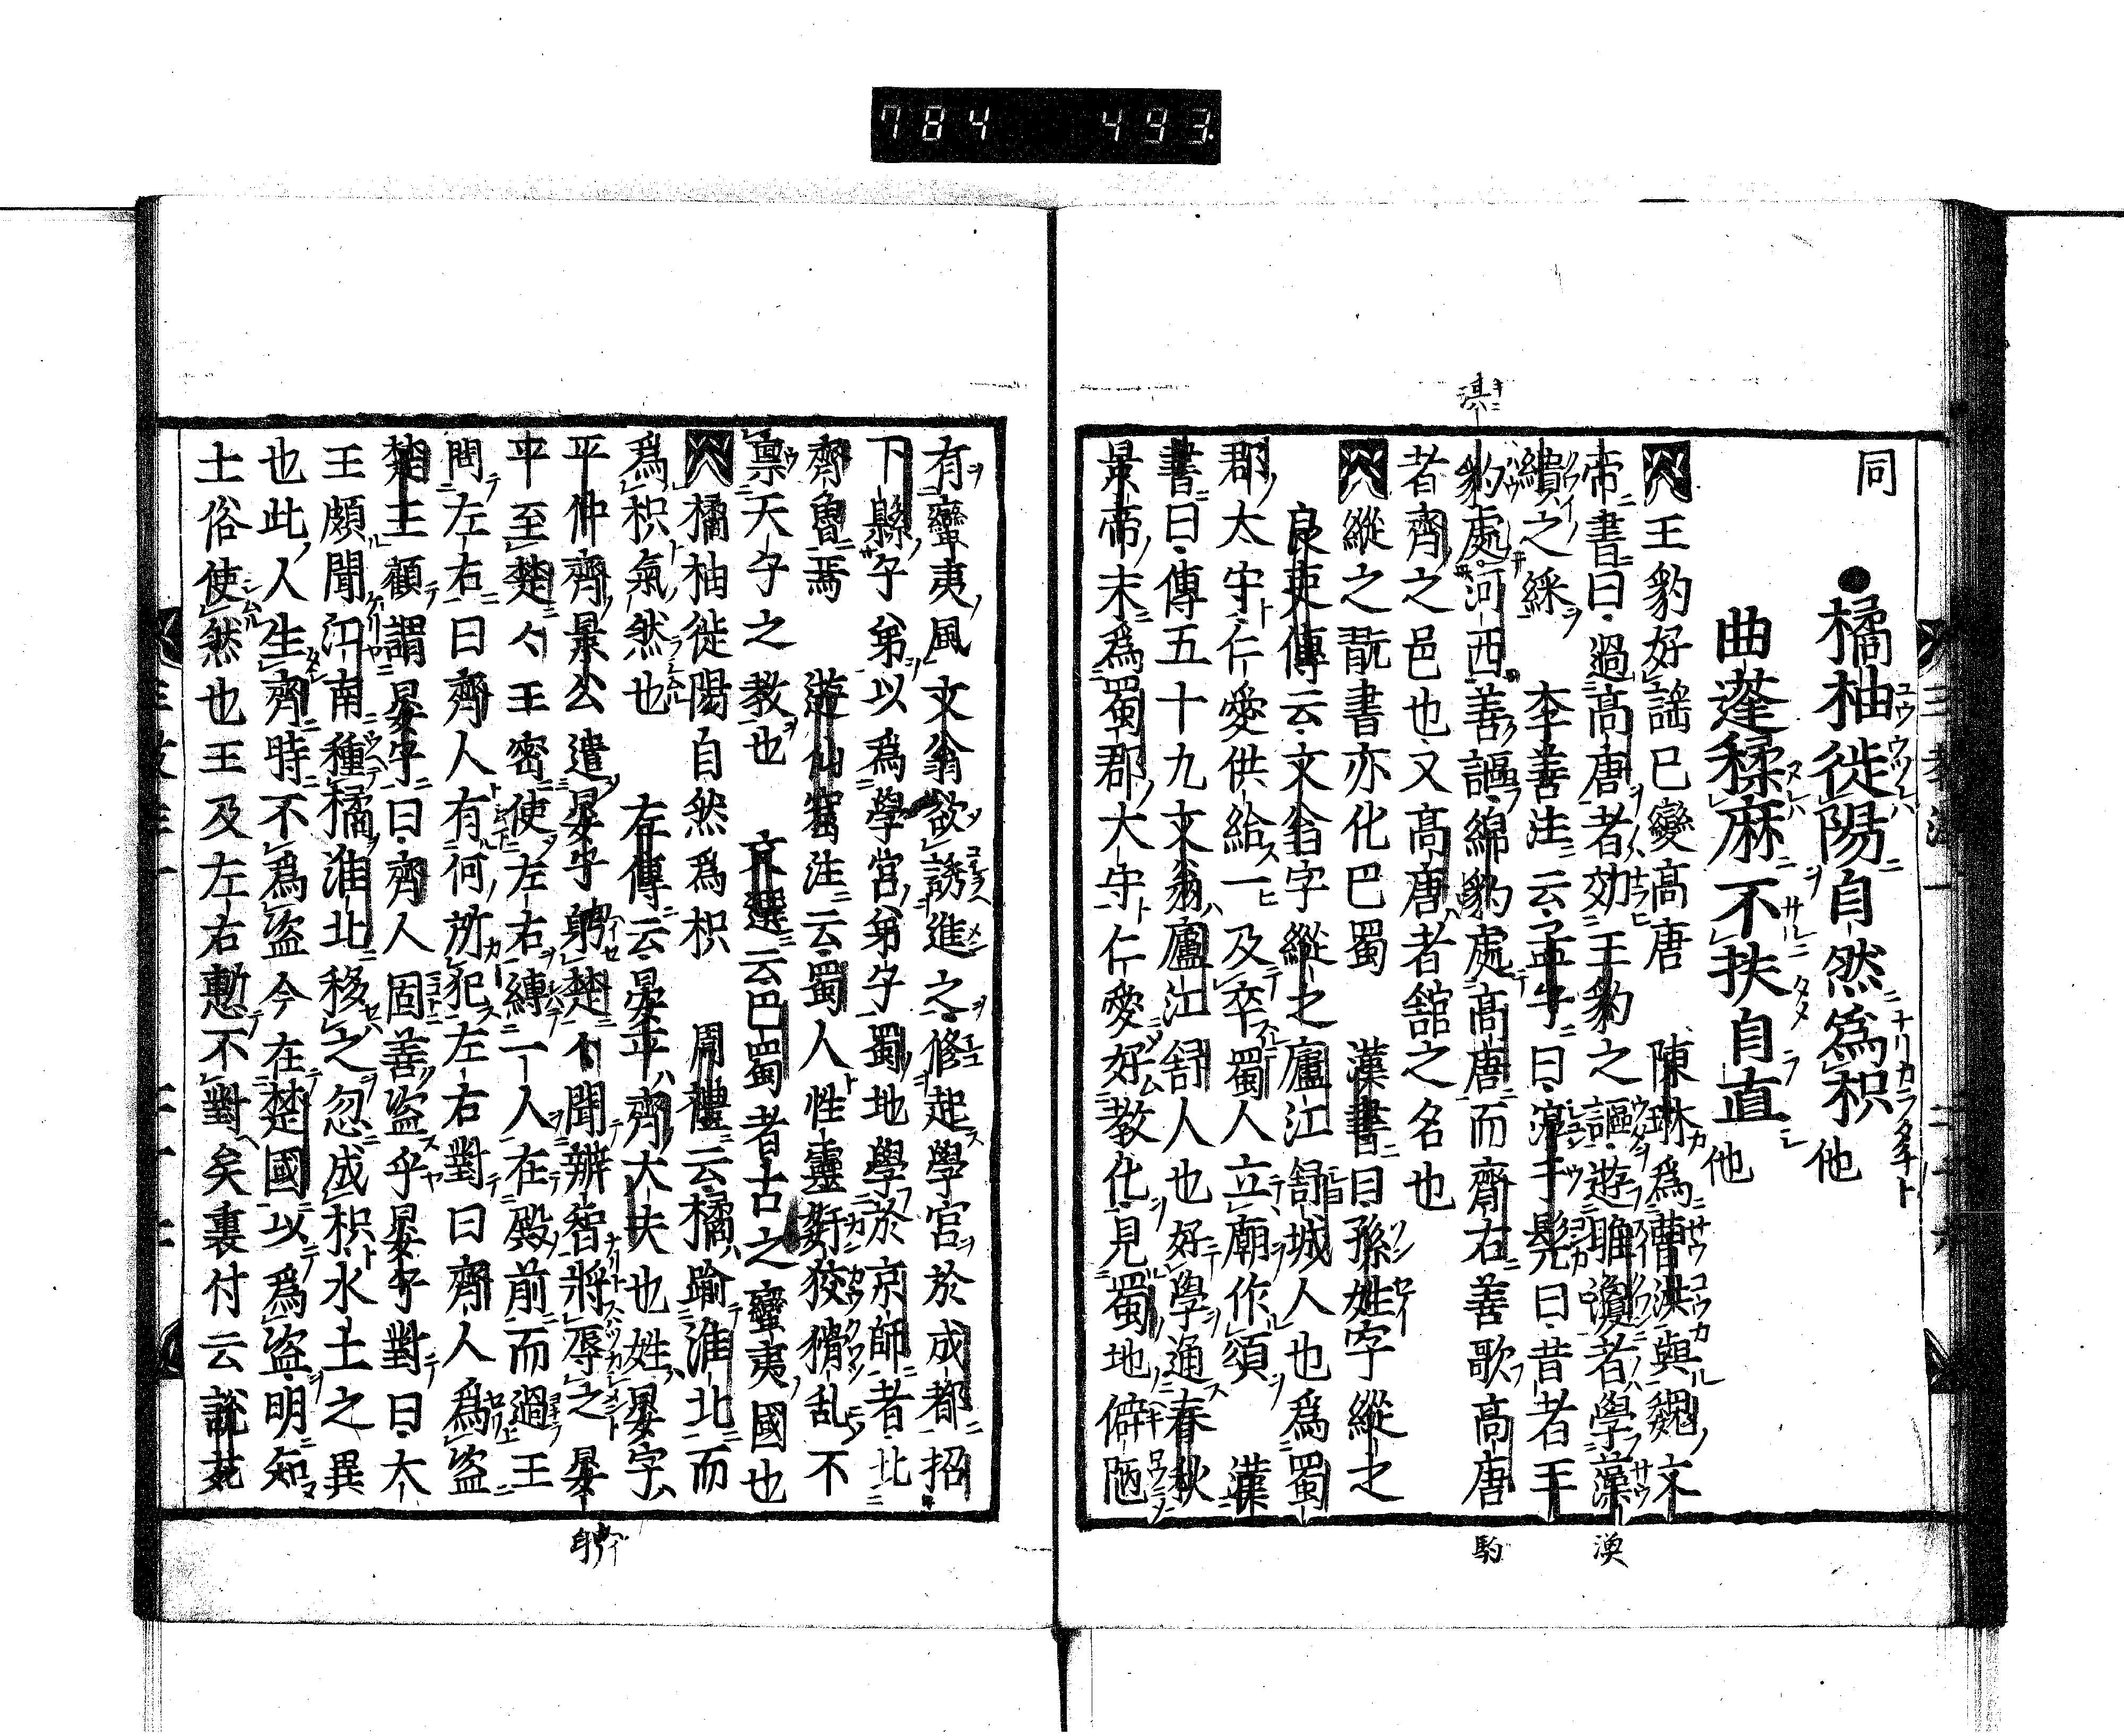 784 493
同
●橘柚徙陽自然為枳他
曲蓬糅麻不扶自直他
王豹好謡已變高唐 陳琳為曹洪與魏文
帝書曰過高唐者効王豹之謳遊睢渙者學藻
繢之綵 李善注云孟子曰淳于髠曰昔者王
豹處河西善謳綿豹處高唐而齊右善歌高唐
者齊之邑也又高唐者舘之名也
縱之翫書亦化巴蜀 漢書曰孫姓字縱之
良吏傳云文翁字縱之廬江舒城人也為蜀
郡太守仁愛供給一及卒蜀人立廟作頌 漢
書曰傳五十九文翁廬江舒人也好學通春秋
景帝末為蜀郡大守仁愛好教化見蜀地僻陋
淇
駒
渙
有蠻夷風文翁欲誘進之修起學宮於成都招
下縣子弟以為學宮弟子蜀地學於京師者比
齊魯焉 遊仙窟注云蜀人性靈姧狡猾乱不
禀天子之教也 文選云巴蜀者古之蠻夷國也
橘柚徙陽自然為枳 周禮云橘踰淮北而
為枳氣然也 左傳云晏平齊大夫也姓晏字
平仲齊景公遣晏子騁楚々聞辨智將辱之晏
平至楚々王密使左右縛二一人在殿前而過王
問左右曰齊人有何所犯左右對曰齊人為盗
楚王顧謂晏子曰齊人固善盗乎晏子對曰大
王頗聞江南種橘淮北移之忽成枳水土之異
也此人生齊時不為盗今在楚國以為盗明知
土俗使然也王及左右慙不對矣裏付云說苑